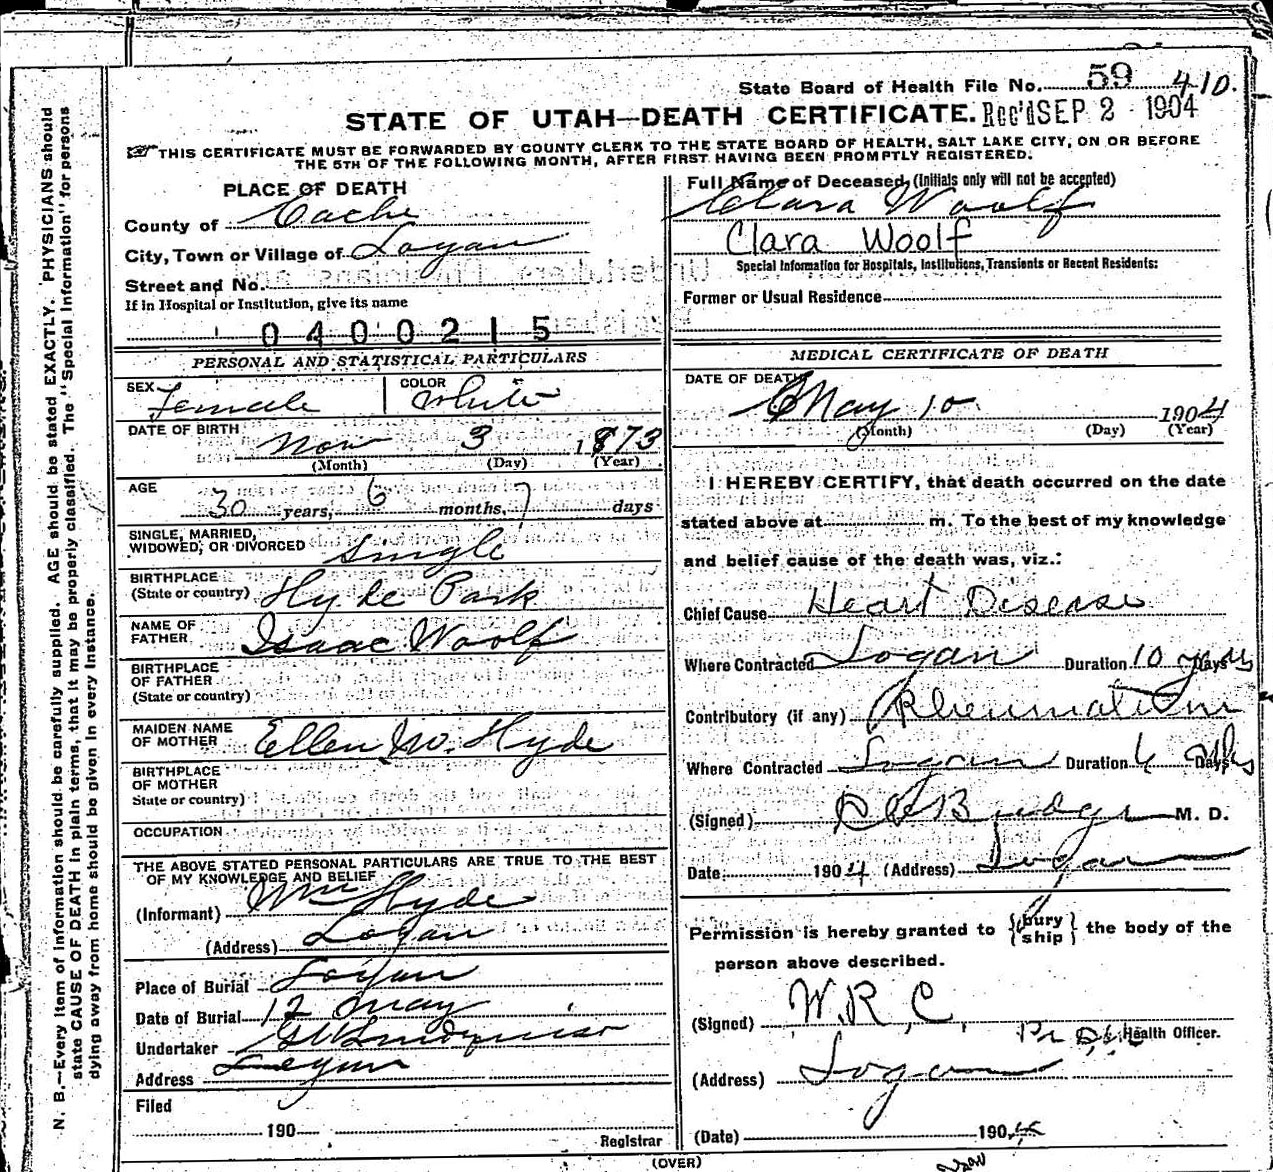 State Board of Health File No. 59 410.
STATE OF UTAH—DEATH CERTIFICATE. Rec'd SEP 2 1904
THIS CERTIFICATE MUST BE FORWARDED BY COUNTY CLERK TO THE STATE BOARD OF HEALTH, SALT LAKE CITY, ON OR BEFORE
THE 5TH OF THE FOLLOWING MONTH, AFTER FIRST HAVING BEEN PROMPTLY REGISTERED.
N. B.—Every item of information should be carefully supplied. AGE should be stated EXACTLY. PHYSICIANS should
state CAUSE OF DEATH in plain terms, that it may be properly classified. The "Special Information" for persons
dying away from home should be given in every instance.
PLACE OF DEATH
County of Cache
City, Town or Village of Logan
Street and No.
If in Hospital or Institution, give its name
0400215
PERSONAL AND STATISTICAL PARTICULARS
SEX Female COLOR White
DATE OF BIRTH Nov 3 1873
(Month) (Day) (Year)
AGE
30 years, 6 months, 7 days
SINGLE, MARRIED,
WIDOWED, OR DIVORCED Single
BIRTHPLACE
(State or country) Hyde Park
NAME OF
FATHER Isaac Woolf
BIRTHPLACE
OF FATHER
(State or country)
MAIDEN NAME
OF MOTHER Ellen W. Hyde
BIRTHPLACE
OF MOTHER
State or country)
OCCUPATION
THE ABOVE STATED PERSONAL PARTICULARS ARE TRUE TO THE BEST
OF MY KNOWLEDGE AND BELIEF
(Informant) Wm Hyde
(Address) Logan
Place of Burial Logan
Date of Burial 12 May
Undertaker
Address Logan
Filed
190
Registrar
Full Name of Deceased (Initials only will not be accepted)
Clara Woolf
Clara Woolf
Special Information for Hospitals, Institutions, Transients or Recent Residents:
Former or Usual Residence
MEDICAL CERTIFICATE OF DEATH
DATE OF DEATH
May 10 1904
(Month) (Day) (Year)
I HEREBY CERTIFY, that death occurred on the date
stated above at m. To the best of my knowledge
and belief cause of the death was, viz.:
Chief Cause Heart Disease
Where Contracted Logan Duration 10 years Days
Contributory (if any) Rheumatism
Where Contracted Logan Duration 6 Days
(Signed) Budge M. D.
Date 1904 (Address) Logan
Permission is hereby granted to {bury
ship} the body of the
person above described.
(Signed) W. R. C.
Health Officer.
(Address) Logan
(Date) 1904
(OVER)